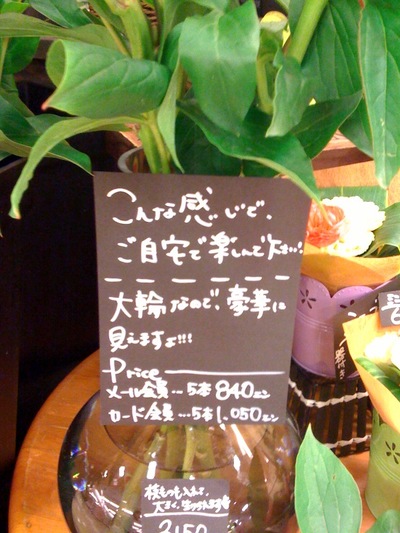 こんな感じで、
ご自宅で楽しんで下さい!
大輪なので、豪華に
見えますよ!!!
Price
メール会員…5本840エン
カード会員…5本1,050エン
3150